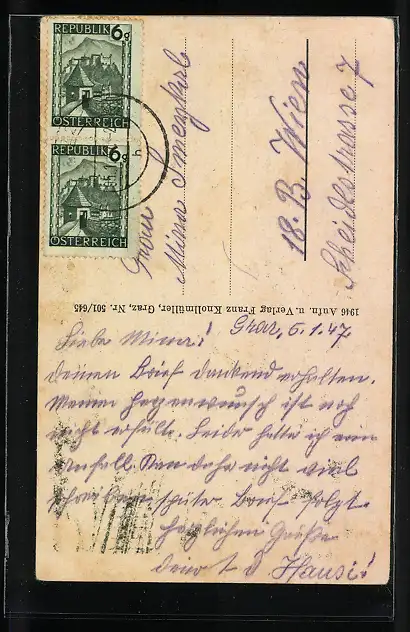 REPUBLIK 6g
ÖSTERREICH
REPUBLIK 6g
ÖSTERREICH
Frau
Mina
18. B. Wien
Scheidlstrasse 7
1946 Aufn. u. Verlag Franz Knollmüller, Graz, Nr. 501/645
Graz, 6.1.47.
Liebe Mina!
deinen Brief dankend erhalten.
Meinen Herzenwunsch ist noch
nicht erfüllt. Leider hatte ich ein
Anfall. Kan daher nicht viel
schreiben später Brief folgt.
Herzlichen Grüße
Hansi!